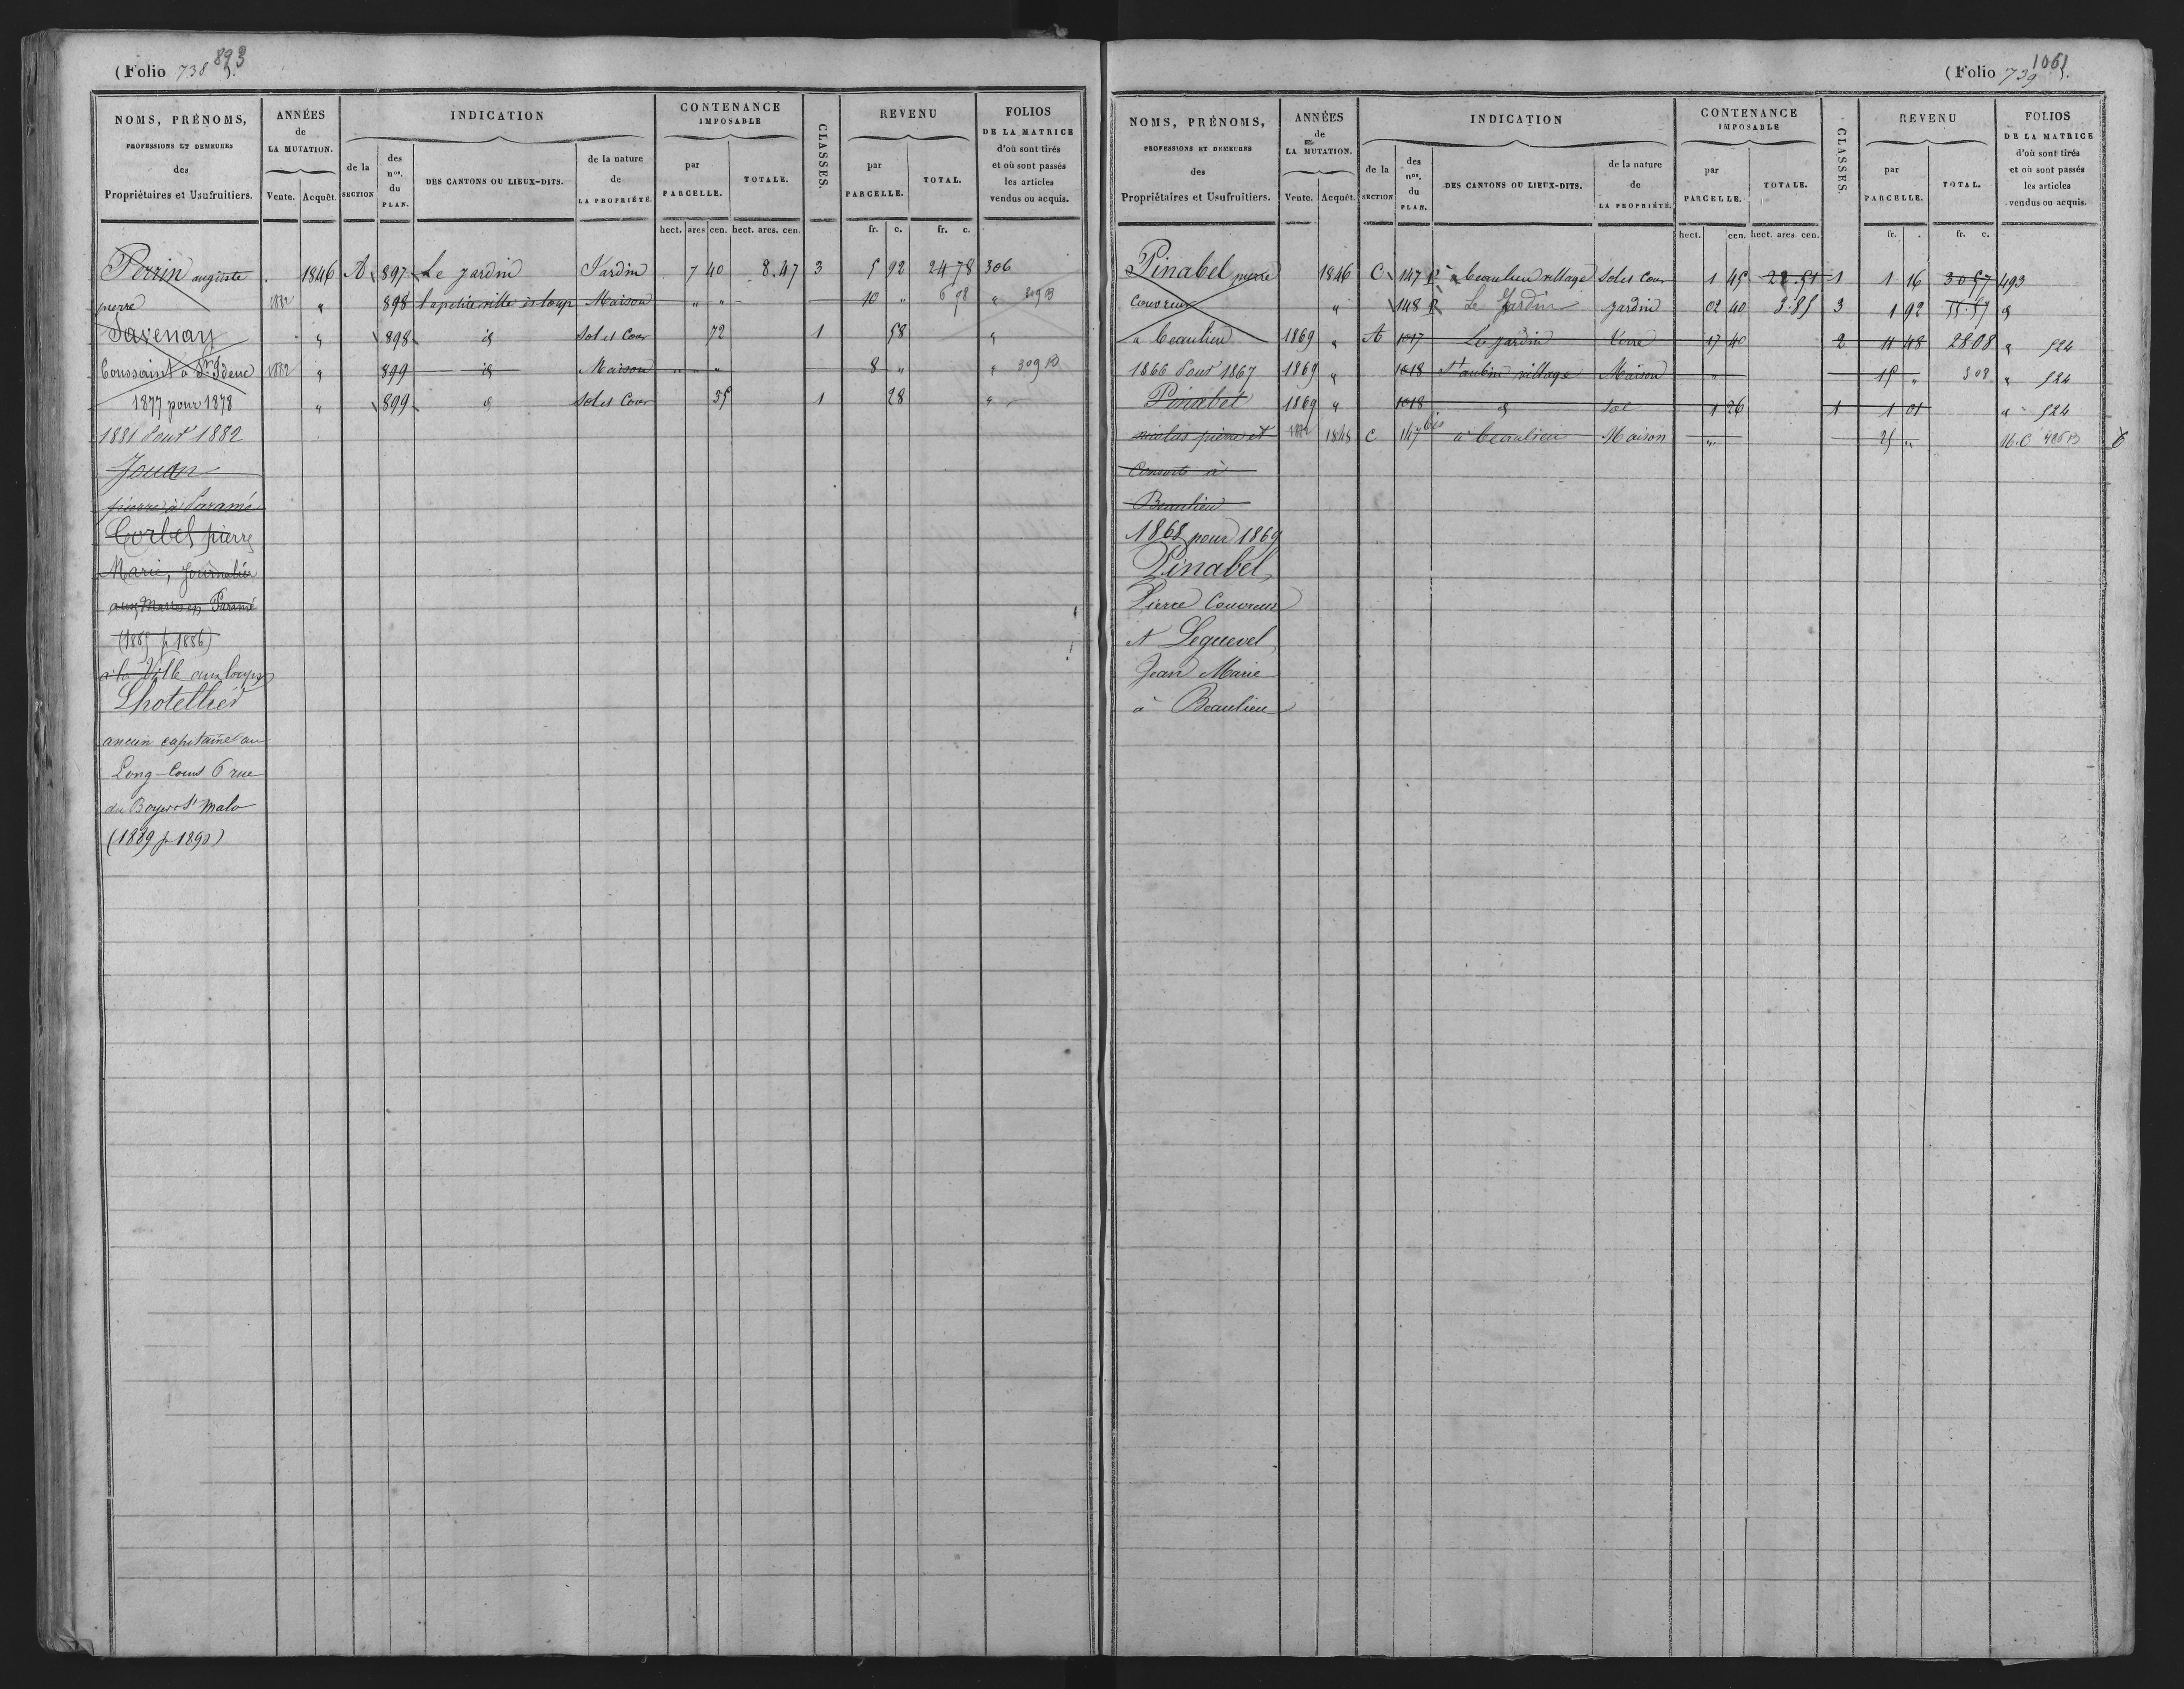 (Folio 738 893).
NOMS, PRÉNOMS,
PROFESSIONS ET DEMEURES
des
Propriétaires et Usufruitiers.
ANNÉES
de
LA MUTATION.
Vente. Acquêt.
INDICATION
de la
SECTION
des
nos.
du
PLAN.
DES CANTONS OU LIEUX-DITS.
de la nature
de
LA PROPRIÉTÉ.
CONTENANCE
IMPOSABLE
par
PARCELLE.
TOTALE.
CLASSES.
REVENU
par
PARCELLE.
TOTAL.
FOLIOS
DE LA MATRICE
d'où sont tirés
et où sont passés
les articles
vendus ou acquis.
hect. ares cen. hect. ares. cen. fr. c. fr. c.
Perrin auguste 1846 A 897 Le jardin Jardin 7 40 8.47 3 5 92 24 78 306
pierre 1882 " 898 la petite ville ès loup Maison " " 10 " 6 78 " 309 B
Savenay " 898 id Sol et Cour 72 1 58 "
Toussaint à St Ideuc 1882 " 899 id Maison " " " 8 " " 309 B
1877 pour 1878 " 899 id Sol et Cour 35 1 28 "
1881 pour 1882
Jouan
pierre à Paramé
Corbel pierre
Marie, Journalier
aux Mares en Paramé
(1885 p 1886)
à la Ville aux loups
Lhotellier
ancien capitaine au
Long-Cours 6 rue
du Boyer St Malo
(1889 p 1890)
(Folio 739 1061).
NOMS, PRÉNOMS,
PROFESSIONS ET DEMEURES
des
Propriétaires et Usufruitiers.
ANNÉES
de
LA MUTATION.
Vente. Acquêt.
INDICATION
de la
SECTION
des
nos.
du
PLAN.
DES CANTONS OU LIEUX-DITS.
de la nature
de
LA PROPRIÉTÉ.
CONTENANCE
IMPOSABLE
par
PARCELLE.
TOTALE.
CLASSES.
REVENU
par
PARCELLE.
TOTAL.
FOLIOS
DE LA MATRICE
d'où sont tirés
et où sont passés
les articles
vendus ou acquis.
hect. cen. hect. ares. cen. fr. . fr. c.
Pinabel pierre 1846 C 147 P à beaulieu village Sol et Cour 1 45 22.51 1 1 16 30 57 493
Couvreur " 148 P Le Jardin jardin 02 40 3.85 3 1 92 55.57 id
à beaulieu 1869 " A 1017 Le jardin terre 17 40 2 11 48 28 08 " 524
1866 pour 1867 1869 " 1018 St aubin village Maison " 15 " 3 08 " 524
Pinabel 1869 " 1018 id Sol 1 26 1 1 01 " 524
nicolas pierre et 1882 1848 C 147 bis à beaulieu Maison " 25 " M.C 486 B
Consorts à
Beaulieu
1868 pour 1869
Pinabel
Pierre Couvreur
et Leguevel
Jean Marie
à Beaulieu